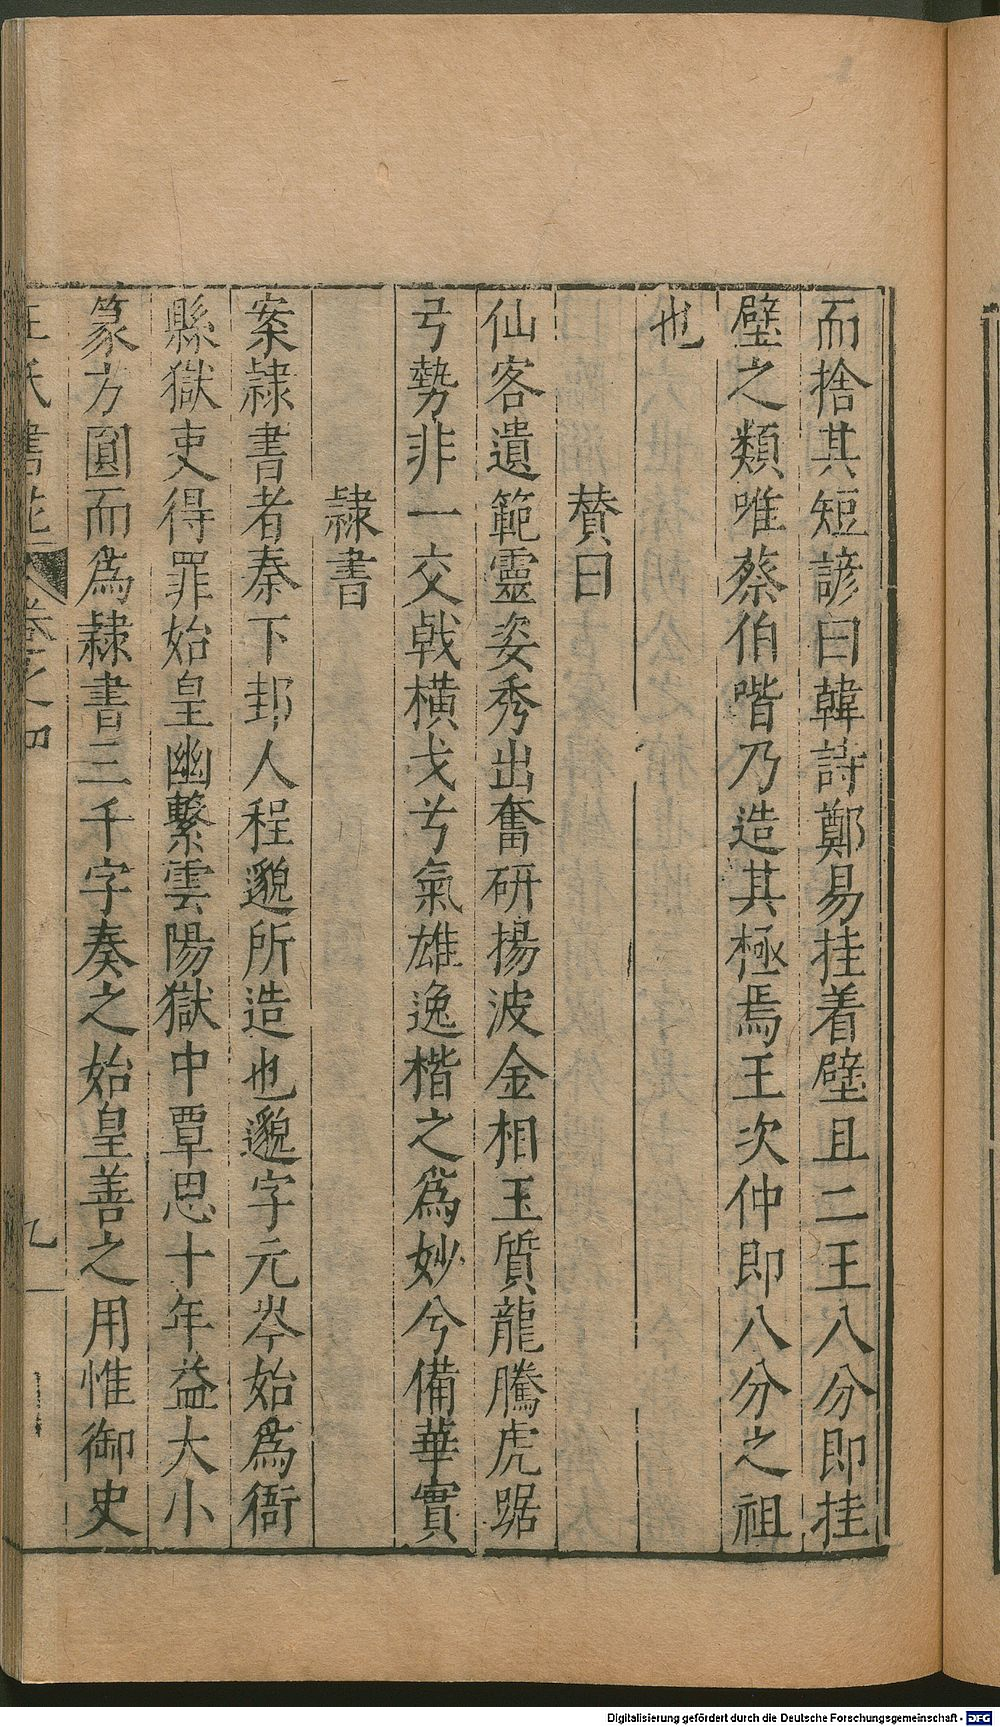 而捨其短諺曰韓詩鄭易挂着壁且二王八分即挂
壁之類唯蔡伯喈乃造其極焉王次仲即八分之祖
也
賛曰
仙客遺範靈姿秀出奮研揚波金相玉質龍騰虎踞
兮勢非一交戟橫戈兮氣雄逸楷之爲妙兮備華實
隷書
案隷書者秦下邽人程邈所造也邈字元岑始爲衙
縣獄吏得罪始皇幽繫雲陽獄中覃思十年益大小
篆方圓而爲隷書三千字奏之始皇善之用惟御史
王氏書苑 卷之四 九
Digitalisierung gefördert durch die Deutsche Forschungsgemeinschaft - DFG